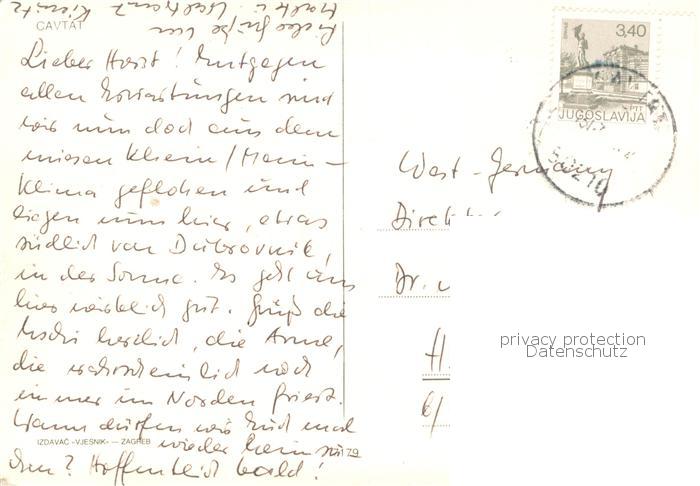 CAVTAT
Lieber Horst! Entgegen
allen Erwartungen sind
wir nun doch aus dem
miesen Rhein/Main-
Klima geflohen und
liegen nun hier, etwas
südlich von Dubrovnik,
in der Sonne. Es geht uns
hier wirklich gut. Grüß die
Uschi herzlich, die Arme,
die wahrscheinlich noch
immer im Norden friert.
Wann dürfen wir Euch mal
wieder hier
? Hoffentlich bald!
Liebe Grüße von
IZDAVAČ «VJESNIK» — ZAGREB
79
3,40
PTT
JUGOSLAVIJA
West-Germany
Dr.
H
6/
privacy protection
Datenschutz